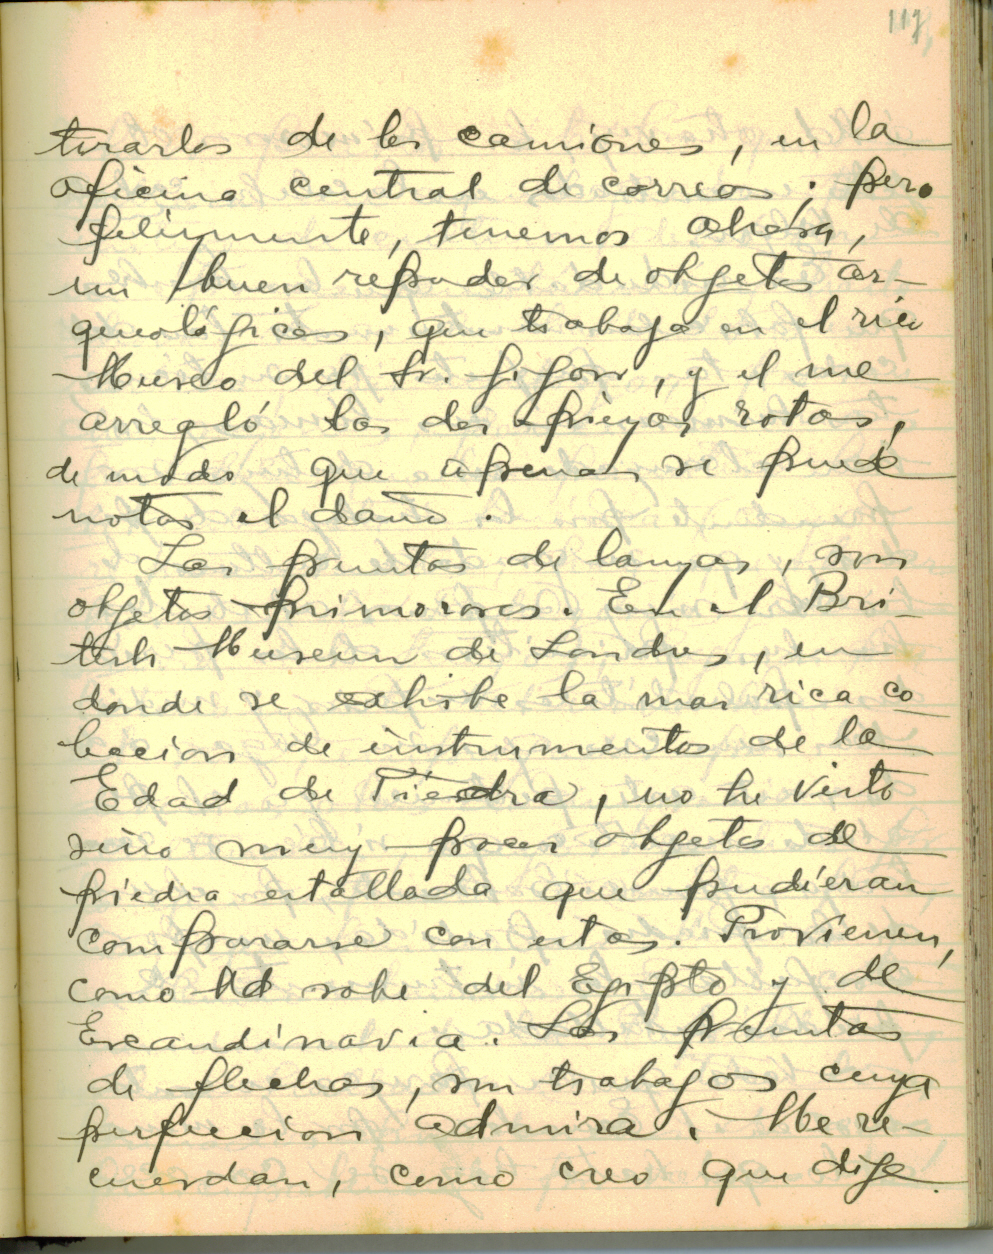 117,
tirarlos de los camiones, en la
oficina central de correos; pero
felizmente, tenemos ahora,
un buen reparador de objetos ar-
queológicos, que trabaja en el rico
Museo del Sr. Gijon, y el me
arregló las dos piezas rotas,
de modo que apenas se puede
notar el daño.
Las puntas de lanzas, son
objetos primorosos. En el Bri-
tish Museum de Londres, en
donde se exhibe la mas rica co
leccion de instrumentos de la
Edad de Piedra, no he visto
sino muy pocos objetos de
piedra estallada que pudieran
compararse con estos. Provienen,
como Ud sabe del Egipto y de
Escandinavia. Las puntas
de flechas, son trabajos cuya
perfeccion admira. Me re-
cuerdan, como creo que dije